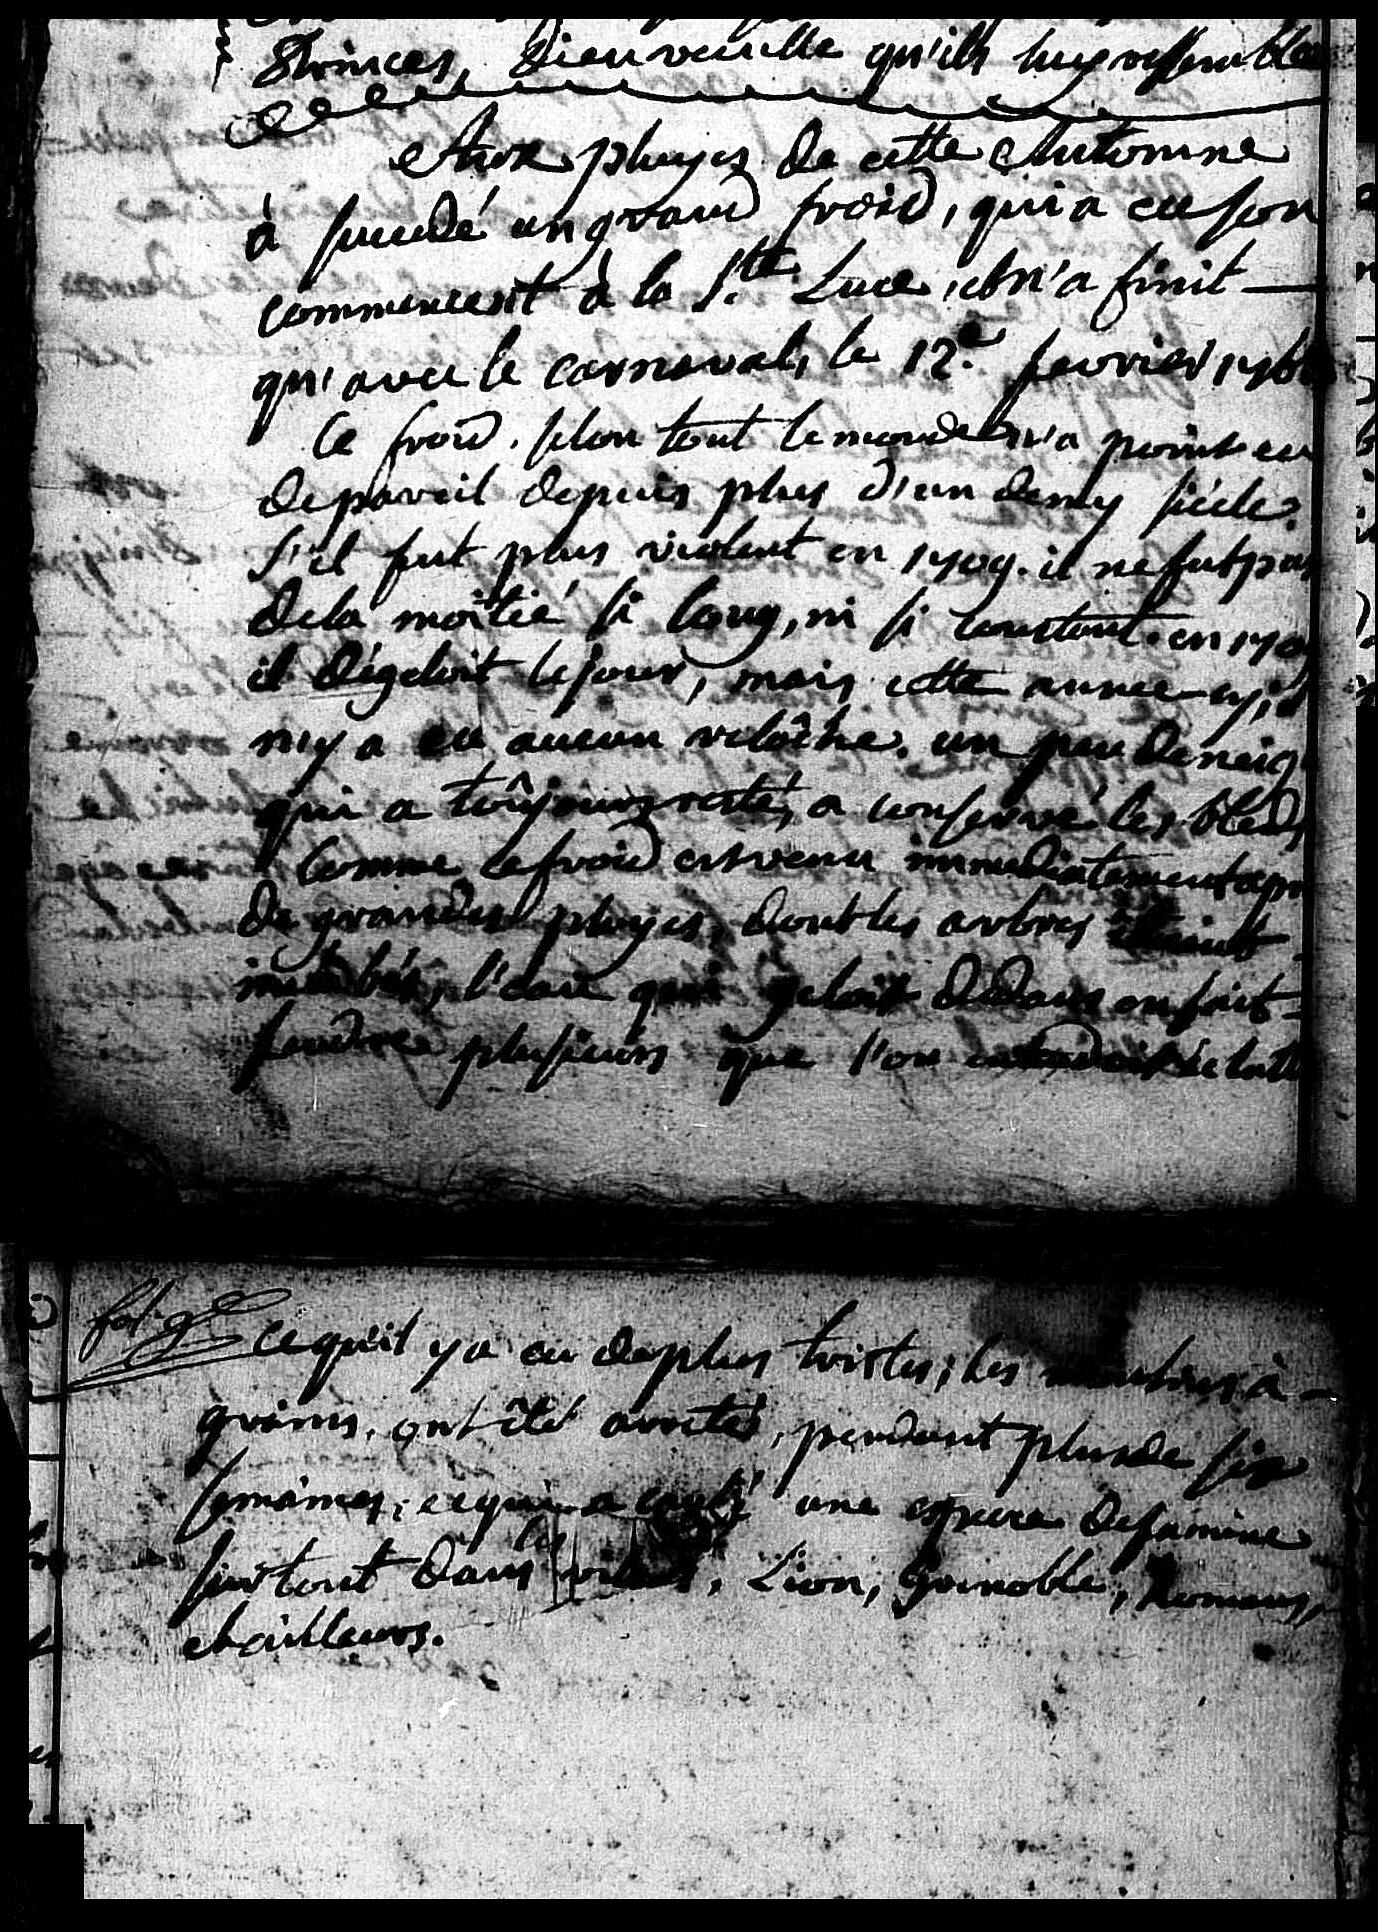 Princes, Dieu veuille qu'ils luy ressemble
Aux pluyes de cette Automne
à succedé un grand froid, qui a eu son
commencent à la S.te Luce, et n'a finit —
qu'avec le carnaval, le 12.e fevrier 176
Ce froid, selon tout le monde n'a point eu
de pareil depuis plus d'un demy siécle.
S'il fut plus violent en 1709. il ne fut pas
de la moitié si long, ni si constant. en 170
il dégeloit le jour, mais cette année cy, il
n'y a eu aucun relâche. un peu de neige
qui a toûjours resté, a conservé les bleds
Comme ce froid est venu immediatement apr
de grandes pluyes, dont les arbres étoient
imbibés, l'eau qui geloit dedans en fait
fendre plusieurs que l'on entendoit éclatte
fol. 9e
ce qu'il y a eu de plus tristes, les moulins à —
grains, ont été arretés, pendant plus de six
semaines; ce qui a causé une espece de famine
surtout dans les villes, Lion, Grinoble, Romans,
et ailleurs.